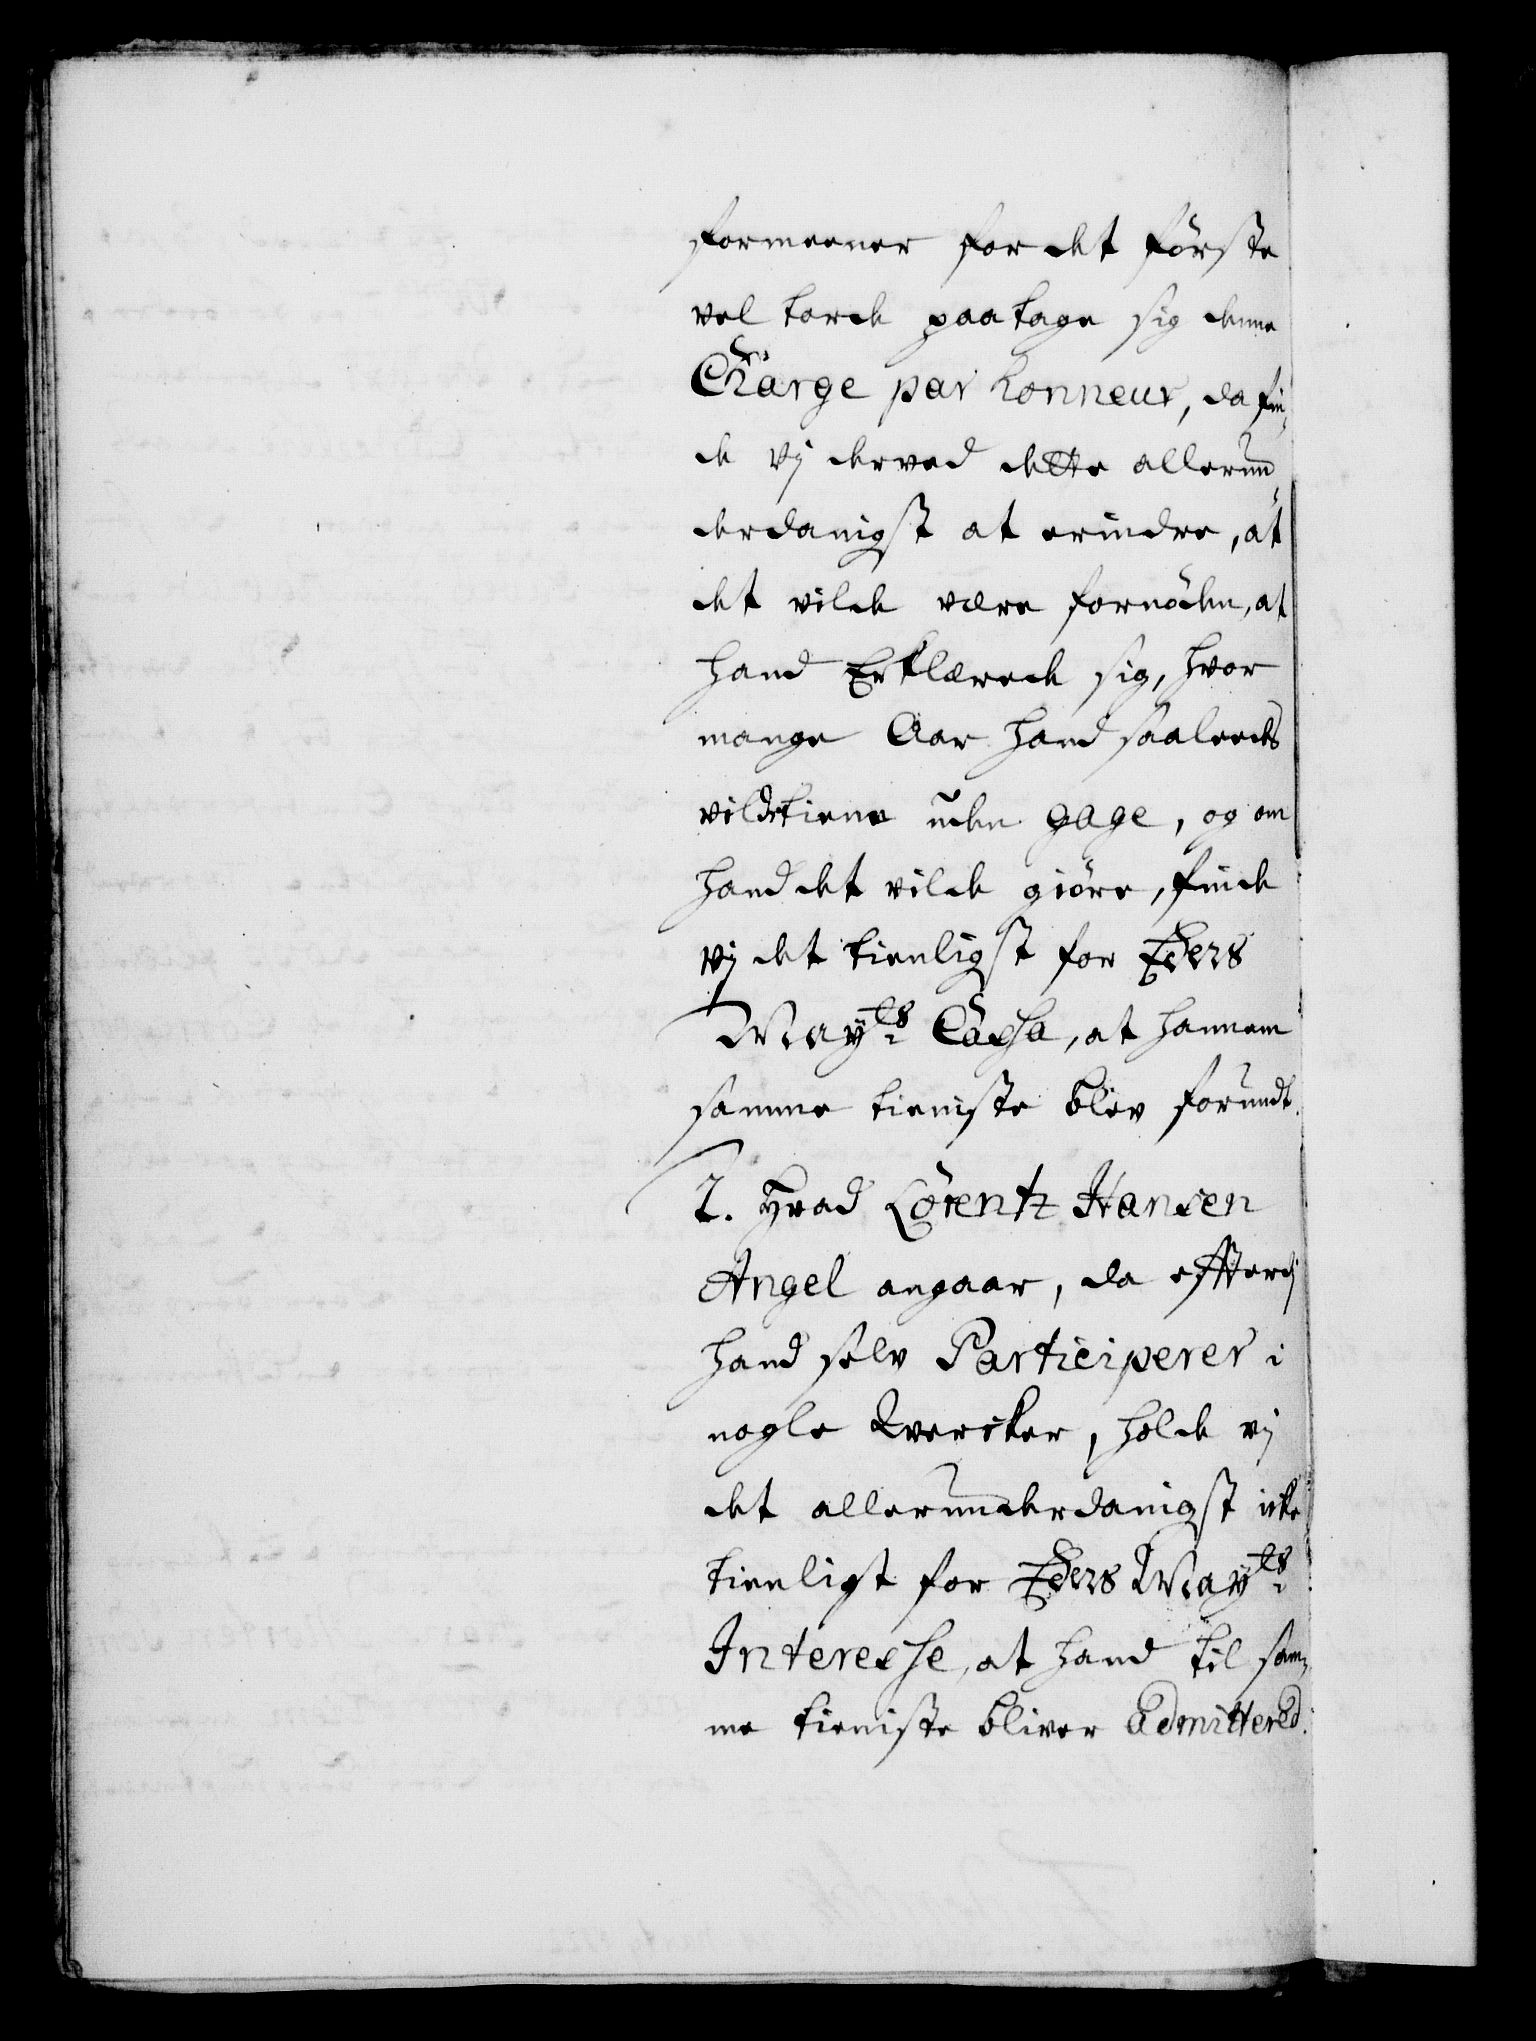 formeener for det förste
vel torde paatage sig denne
Charge par honneur, da fin-
de vj derved dette allerun-
derdanigst at erindre, at
det vilde være fornöden, at
hand Erklærede sig, hvor
mange Aar hand saaleedes
vilde tiene uden gage, og om
hand det vilde giöre, finde
vj det tienligst for Eders
Mayts Cassa, at hannem
samme tieniste blev forundt.
2. Hvad Lorentz Hansen
Angel angaar, da effterdj
hand selv Participerer i
nogle Kvercker, holde vj
det allerunderdanigst icke
tienligt for Eders Mayts
Interesse, at hand til sam-
me tieniste bliver Admittered.